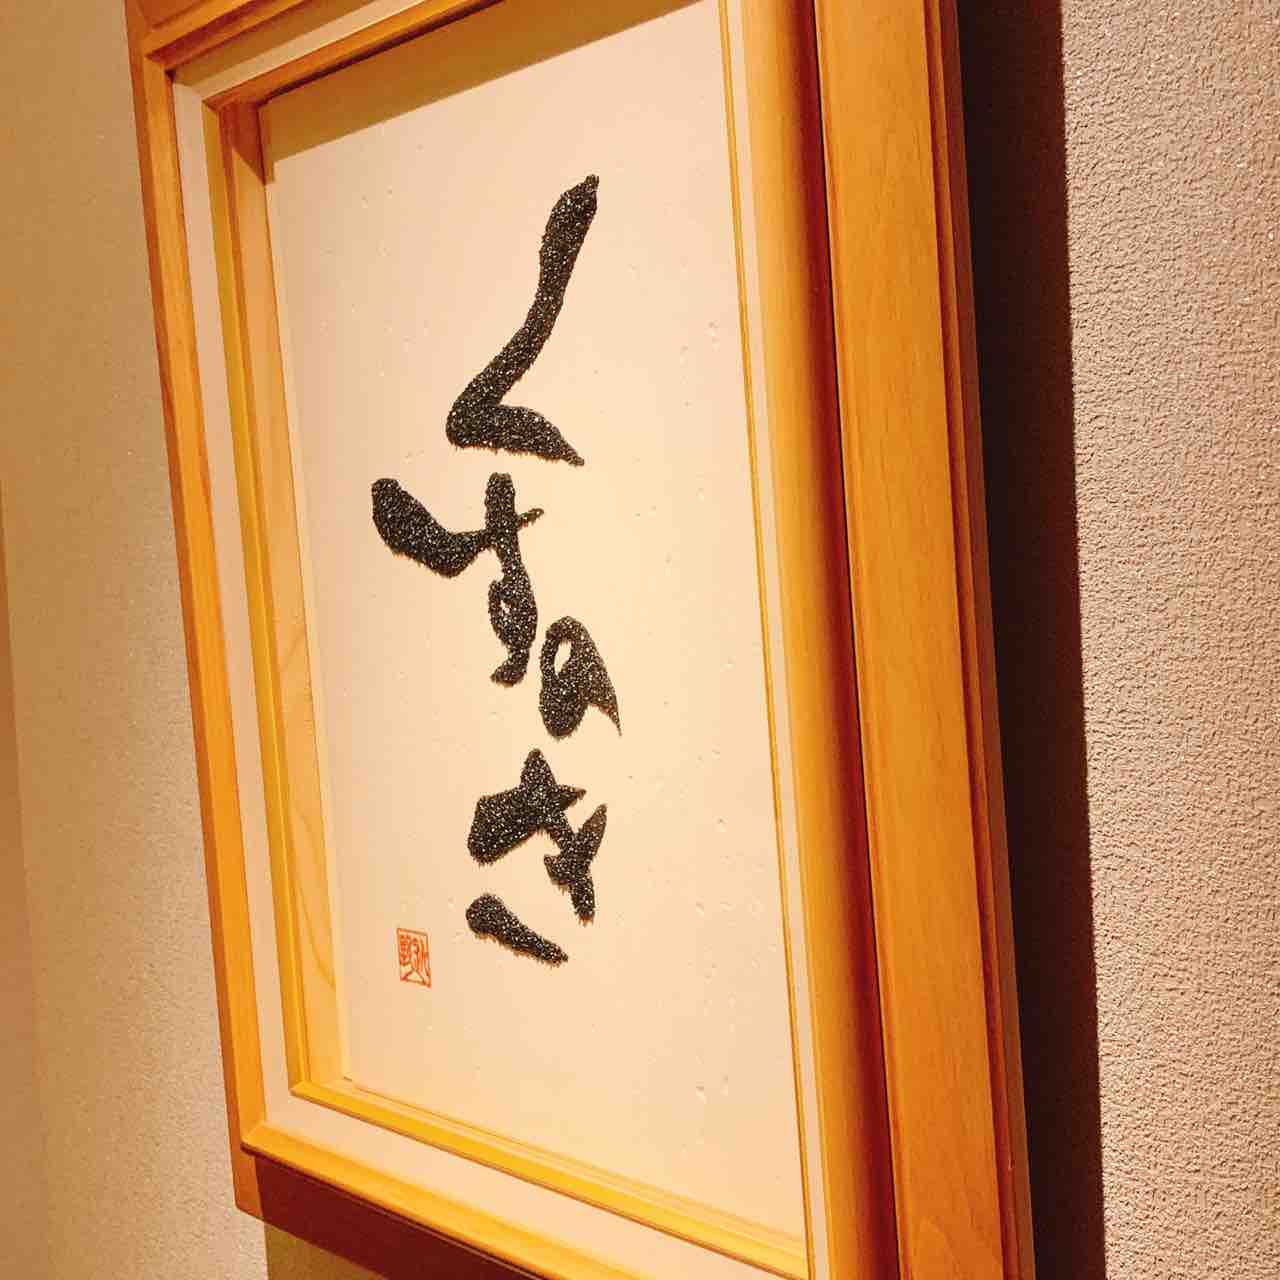 くすのき